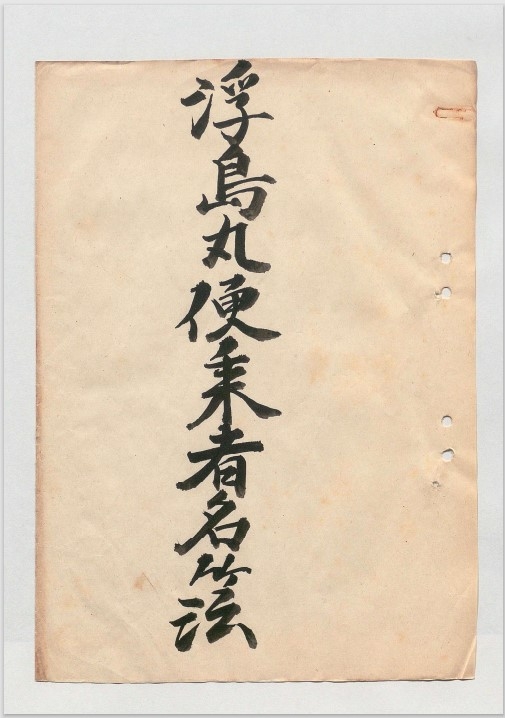 浮島丸便乗者名簿